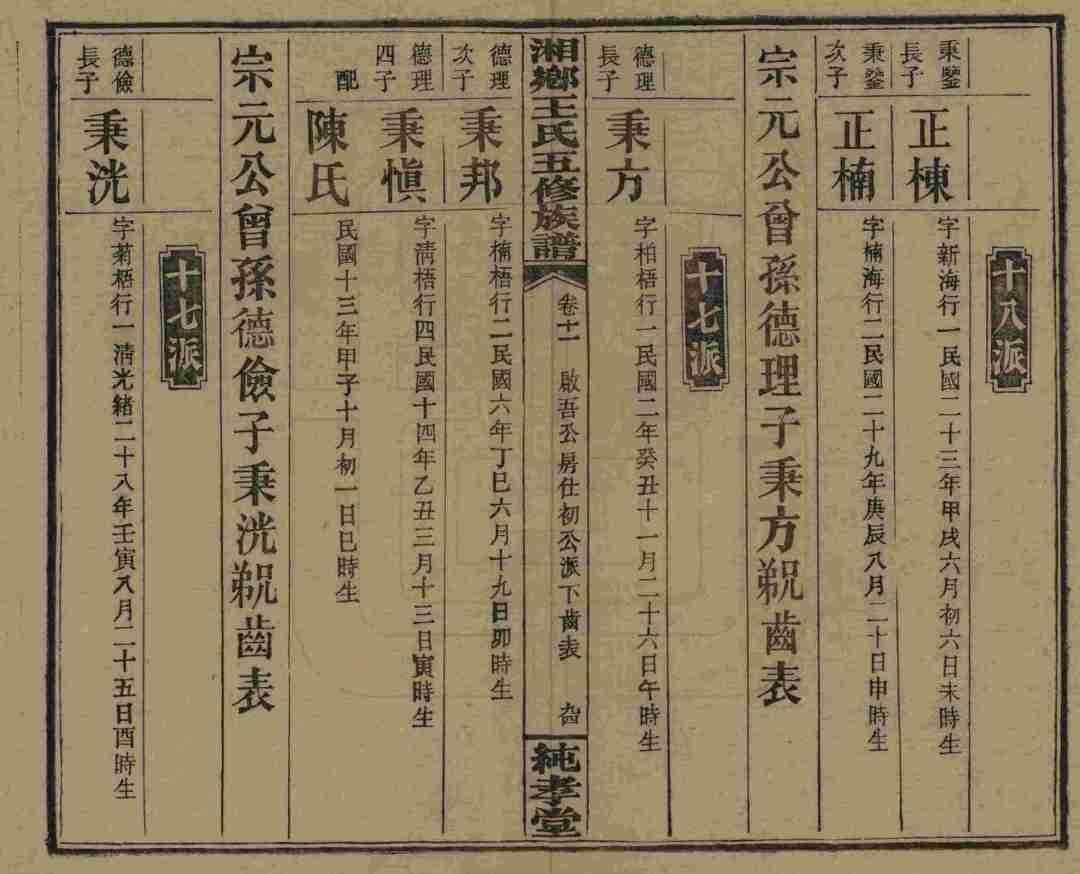 十八派
秉鑒長子
正棟
字新海行一民國二十三年甲戌六月初六日未時生
秉鑒次子
正楠
字楠海行二民國二十九年庚辰八月二十日申時生
宗元公曾孫德理子秉方覨齒表
十七派
德理長子
秉方
字柏梧行一民國二年癸丑十一月二十六日午時生
湘鄉王氏五修族譜
卷十一
啟吾公房仕初公派下齒表
純孝堂
德理次子
秉邦
字楠梧行二民國六年丁巳六月十九日卯時生
德理四子
秉愼
字淸梧行四民國十四年乙丑三月十三日寅時生
配
陳氏
民國十三年甲子十月初一日巳時生
宗元公曾孫德儉子秉洸覨齒表
十七派
德儉長子
秉洸
字菊梧行一淸光緒二十八年壬寅八月二十五日酉時生